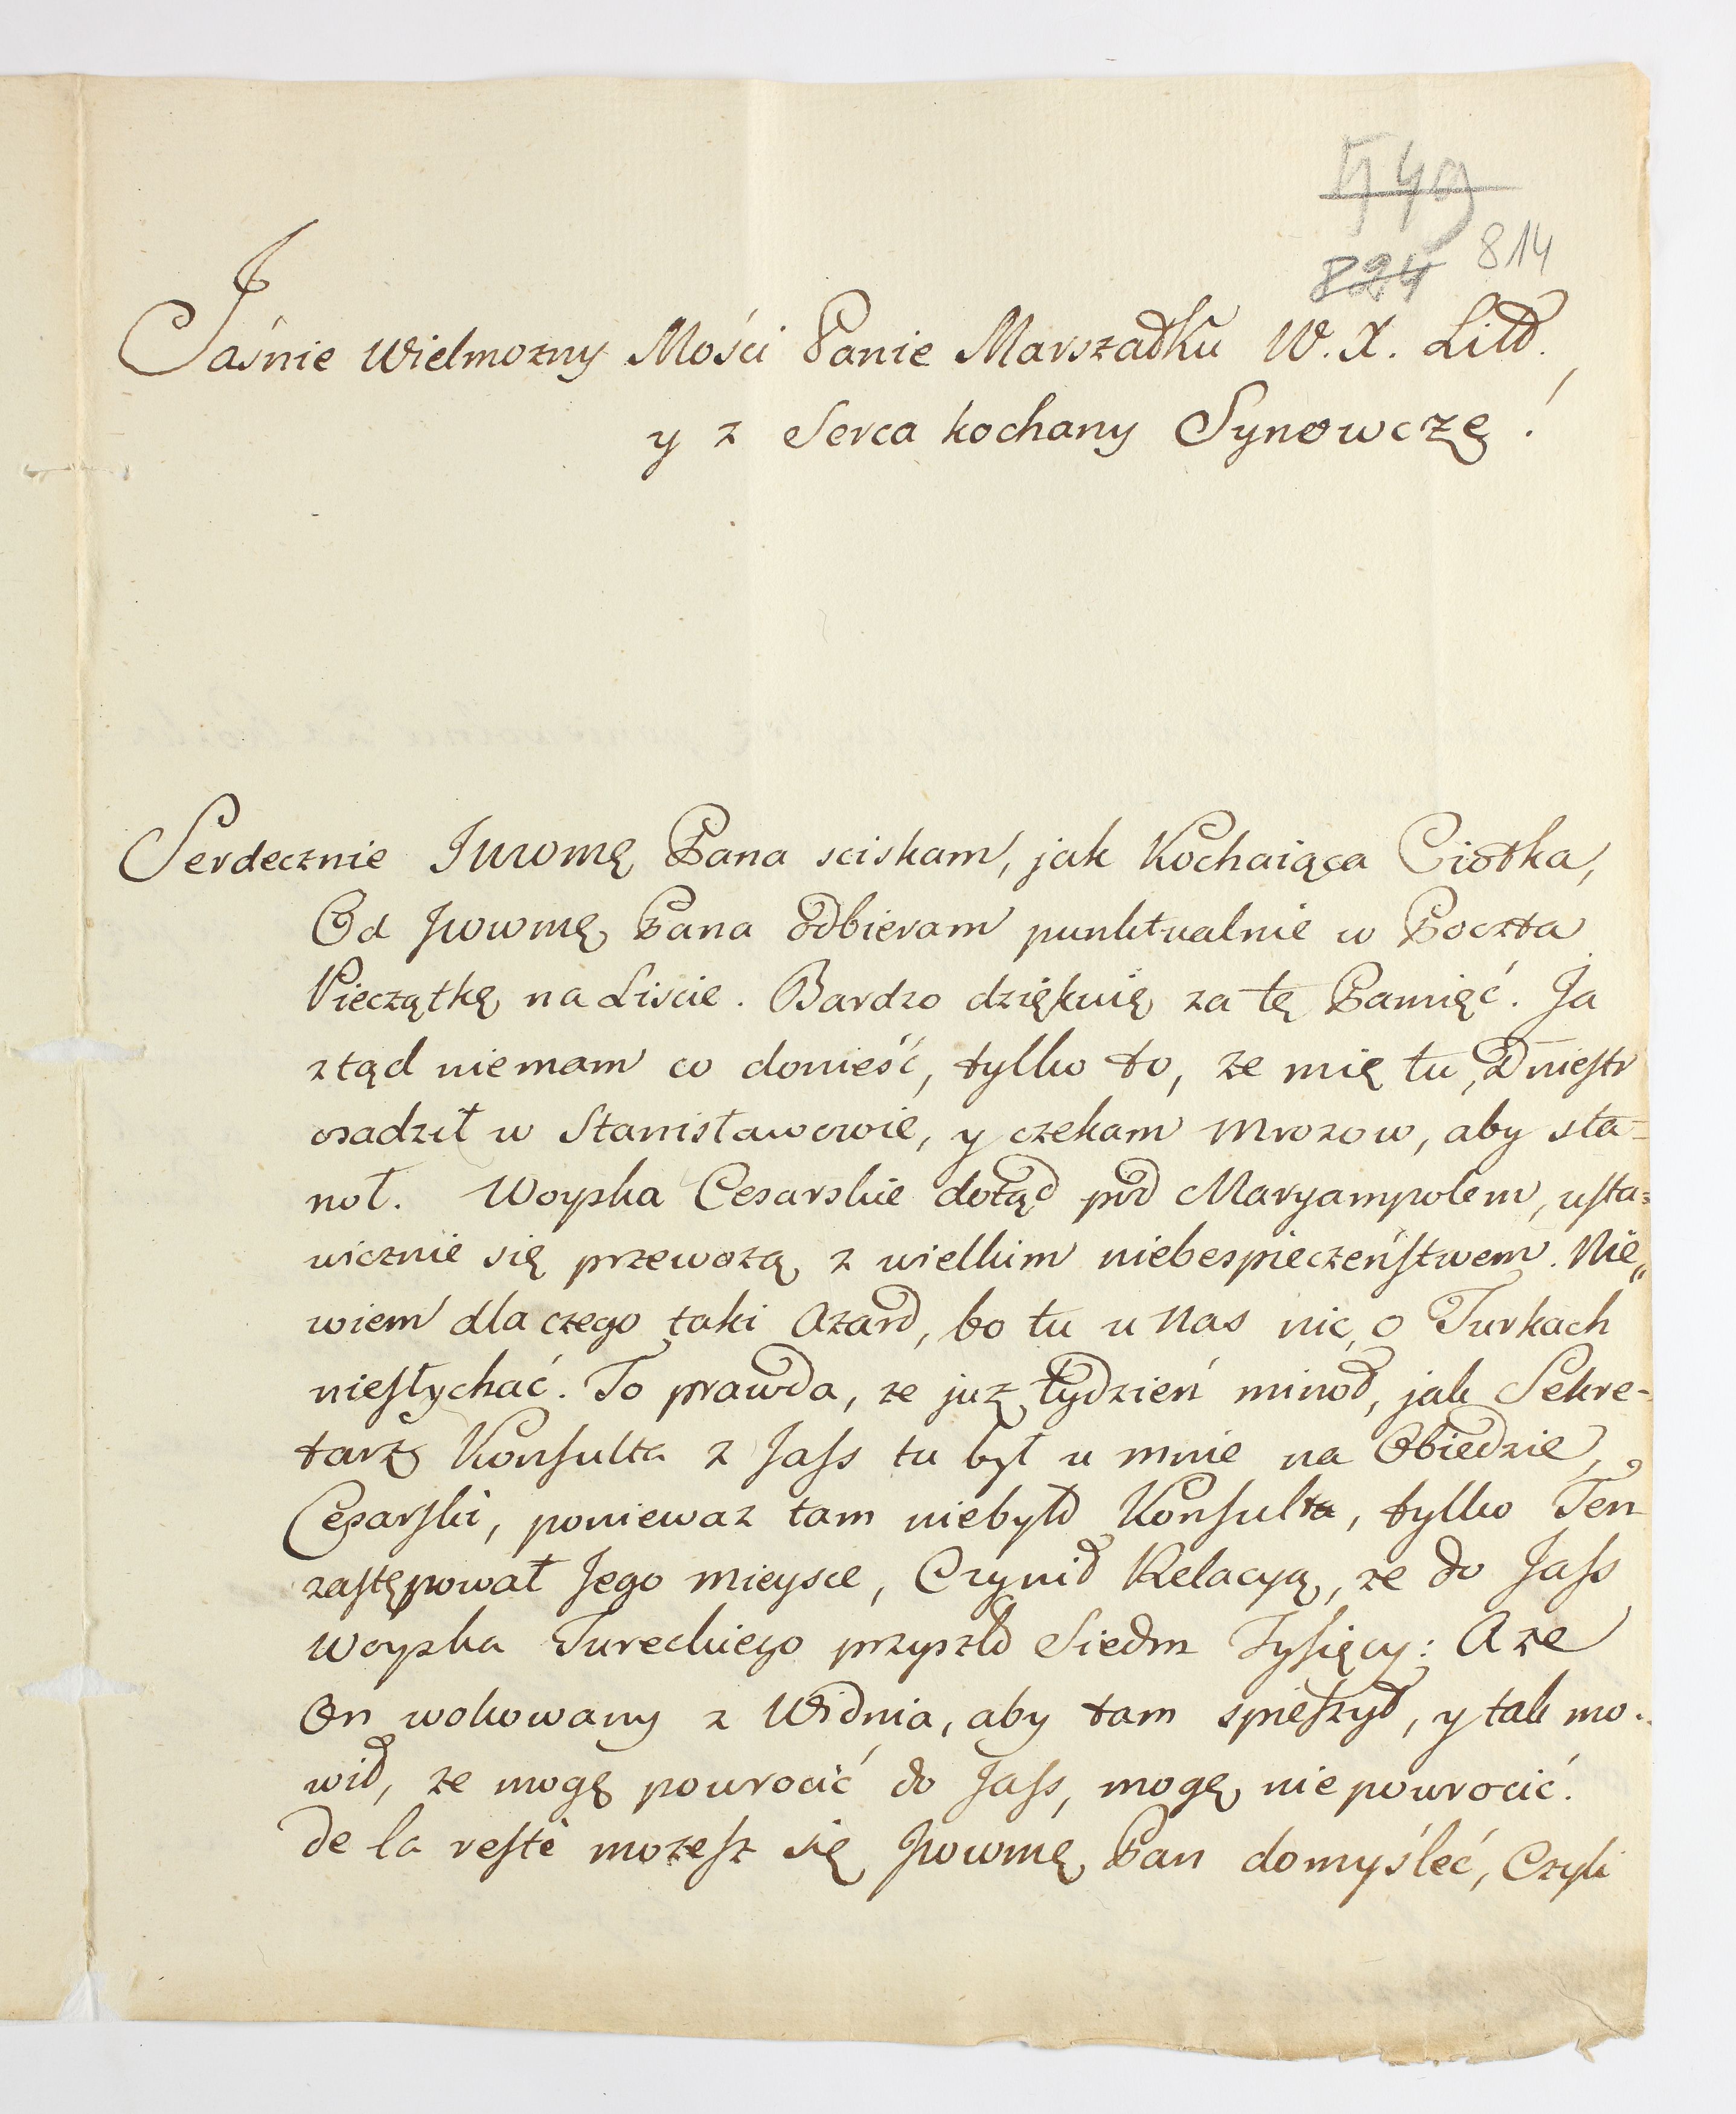 549
824 814
Jaśnie Wielmozny Mości Panie Marszałku W. X. Litt.
y z Serca kochany Synowczę!
Serdecznie Jwomę Pana sciskam, jak Kochaiąca Ciotka,
Od Jwomę Pana odbieram punktualnie w Poczta
Pieczątkę na Liscie. Bardzo dziękuię za tę Pamięć. Ja
ztąd niemam co donieść, tylko to, ze mię tu Dniestr
osadził w Stanisławowie, y czekam mrozow, aby sta=
noł. Woyska Cesarskie dotąd pod Maryampolem, usta=
wicznie się przewozą z wielkim niebespieczeństwem. Nie„
wiem dla czego taki Azard, bo tu u Nas nic o Turkach
niesłychać. To prawda, ze juz tydzień minoł, jak Sekre-
tarz Konsulta z Jass tu był u mnie na Obiedzie,
Cesarski, poniewaz tam niebyło Konsulta, tylko Ten
zastępował Jego mieysce, Czynił Relacyą, ze do Jass
Woyska Tureckiego przyszło Siedm Tysięcy: A ze
On wokowany z Widnia, aby tam spieszył, y tak mo-
wił, ze mogę powrocić do Jass, mogę nie powrocić.
de la reste mozesz się Jwomę Pan domyśleć, Czyli